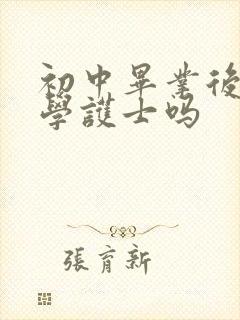 初中畢業後
學護士吗
張育新